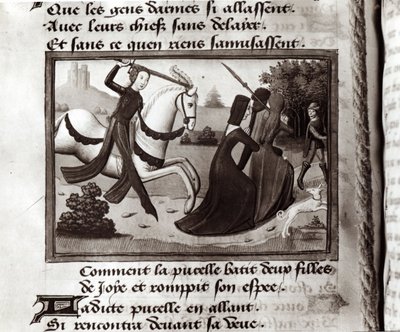 Que les gens darmes si allassent.
Auec leurs chiefz sans delaier.
Et sans ce quen riens samusassent.
Comment la pucelle batit deux filles
de Joye et rompit son espee.
Ladicte pucelle en allant.
Si rencontra deuant sa veue.